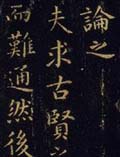 論之
夫求古賢之
而難通然後